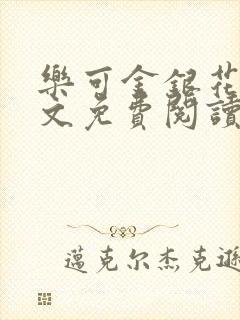 樂可金銀花
文免費閱讀
邁克尔杰克遜